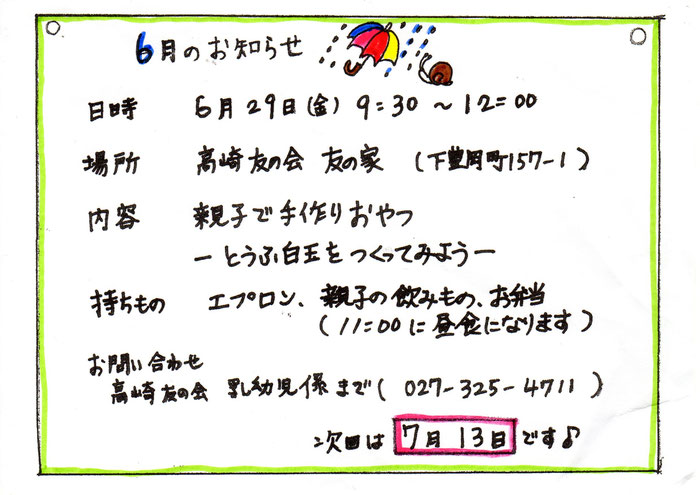 6月のお知らせ
日時 6月29日(金) 9:30 ~12:00
場所 高崎友の会 友の家 (下豊岡町157-1)
内容 親子で手作りおやつ
ーとうふ白玉をつくってみようー
持ちもの エプロン、親子の飲みもの、お弁当
(11:00に昼食になります)
お問い合わせ
高崎友の会 乳幼児係まで(027-325-4711)
次回は 7月13日 です♪